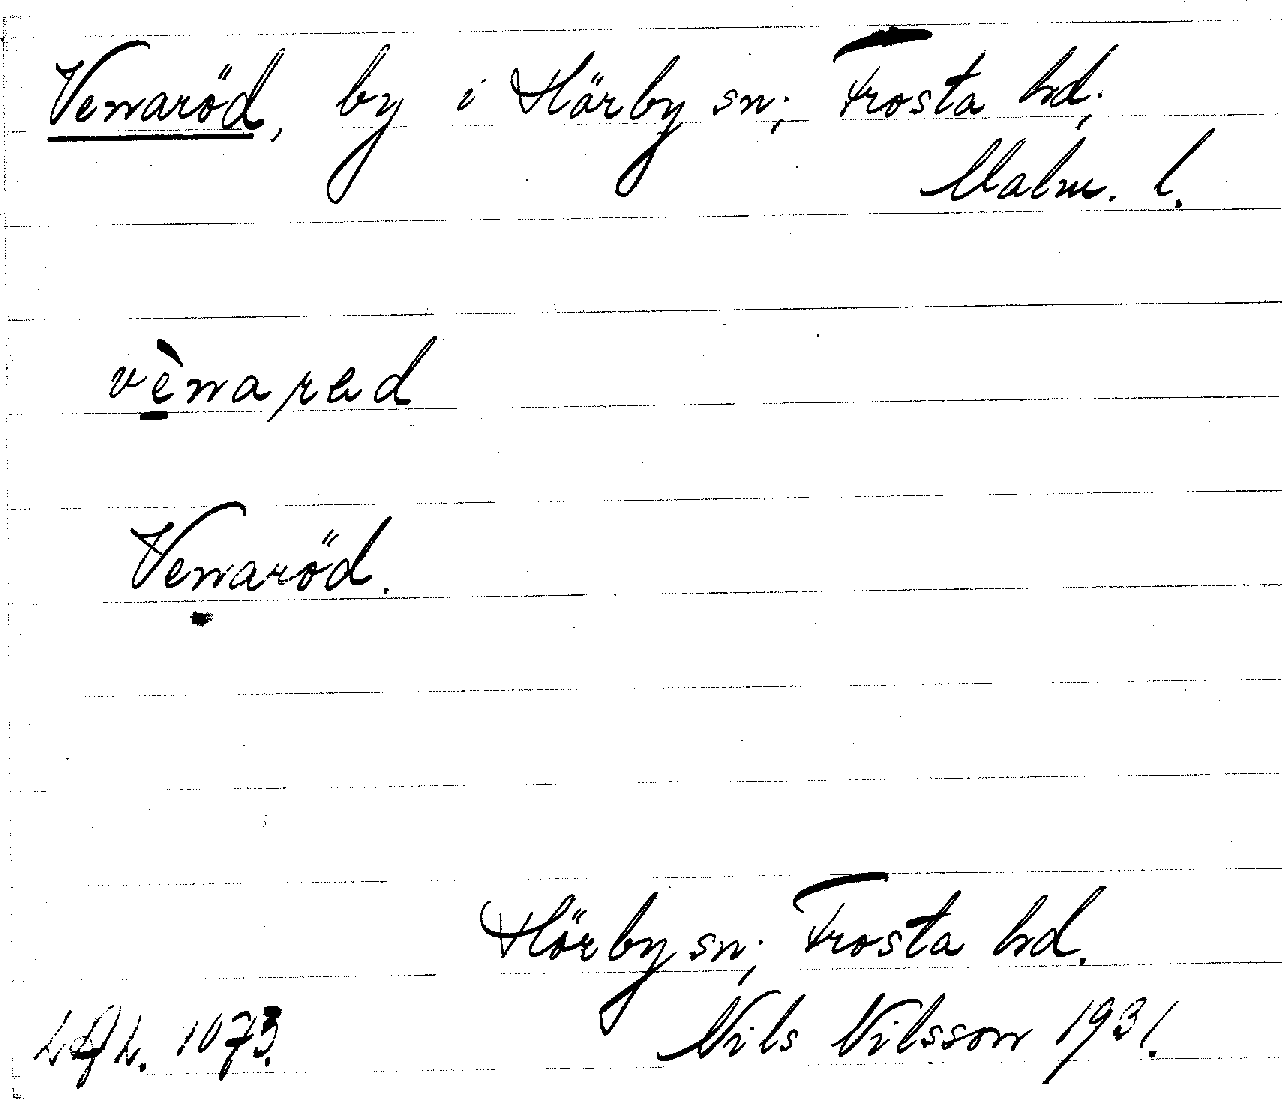 Venaröd, by i Hörby sn; Frosta hd;
Malm. l.
vènarad
Venaröd.
Hörby sn; Frosta hd.
LAL. 1073. Nils Nilsson 1931.